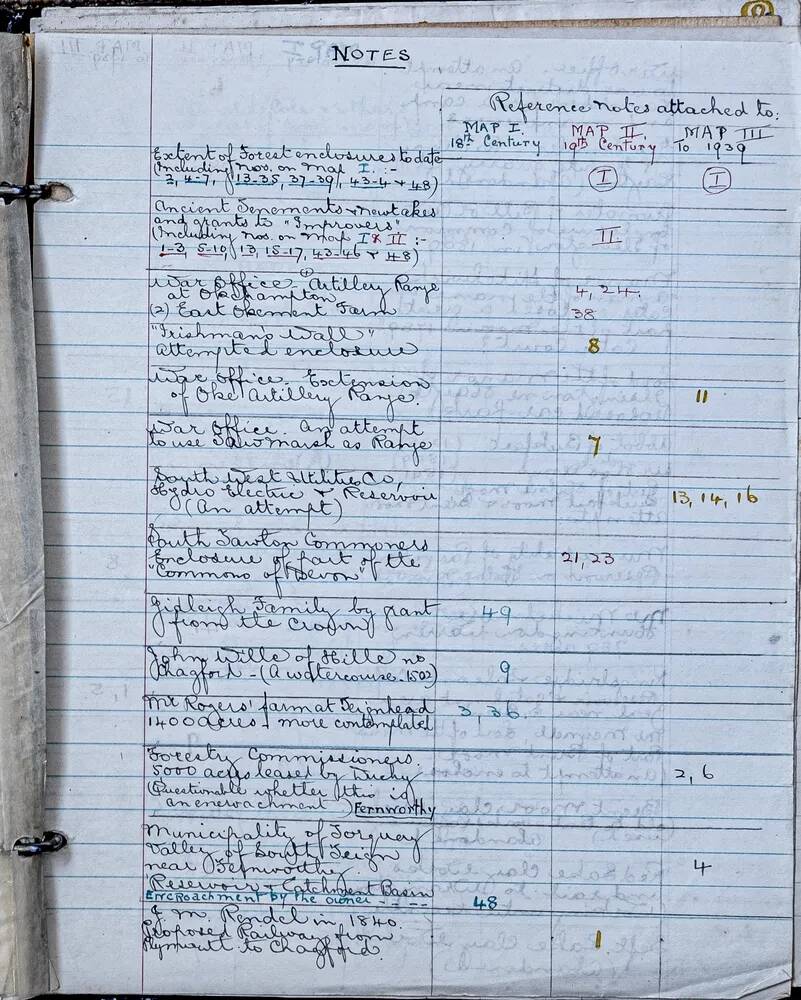 NOTES
Reference notes attached to:
MAP I. MAP II. MAP III
18th Century 19th Century To 1939
Extent of Forest enclosures to date
(Including nos. on Map I. :-
3, 4-7, 13-35, 37-39, 43-4 & 48) I I
Ancient Tenements & newtakes
and grants to "Improvers"
(Including nos. on Map I & II :-
1-3, 5-10, 13, 15-17, 43-46 & 48) II
War Office - (1) Artillery Range
at Okehampton 4, 24.
(2) East Okement Farm 38
"Irishman's Wall"
Attempted enclosure 8
War Office - Extension
of Oke. Artillery Range. 11
War Office. An attempt
to use Taw marsh as Range 7
South West Utilities Co,
Hydro Electric & Reservoir 13, 14, 16
(An attempt)
South Tawton Commoners
Enclosure of part of the 21, 23
"Commons of Devon"
Gidleigh Family by grant 49
from the Crown
John Wille of Hille no 9
Chagford - (A watercourse - 1502)
Mr Rogers' farm at Teignhead 3, 36.
1400 acres - more contemplated
Forestry Commissioners.
5000 acres leased by Duchy 2, 6
(Questionable whether this is
an encroachment) Fernworthy
Municipality of Torquay
Valley of South Teign
near Fernworthy. 4
Reservoir & Catchment Basin
Encroachment by the owner - - - - 48
J. M. Rendel in 1840.
Proposed Railway from 1
Plymouth to Chagford.